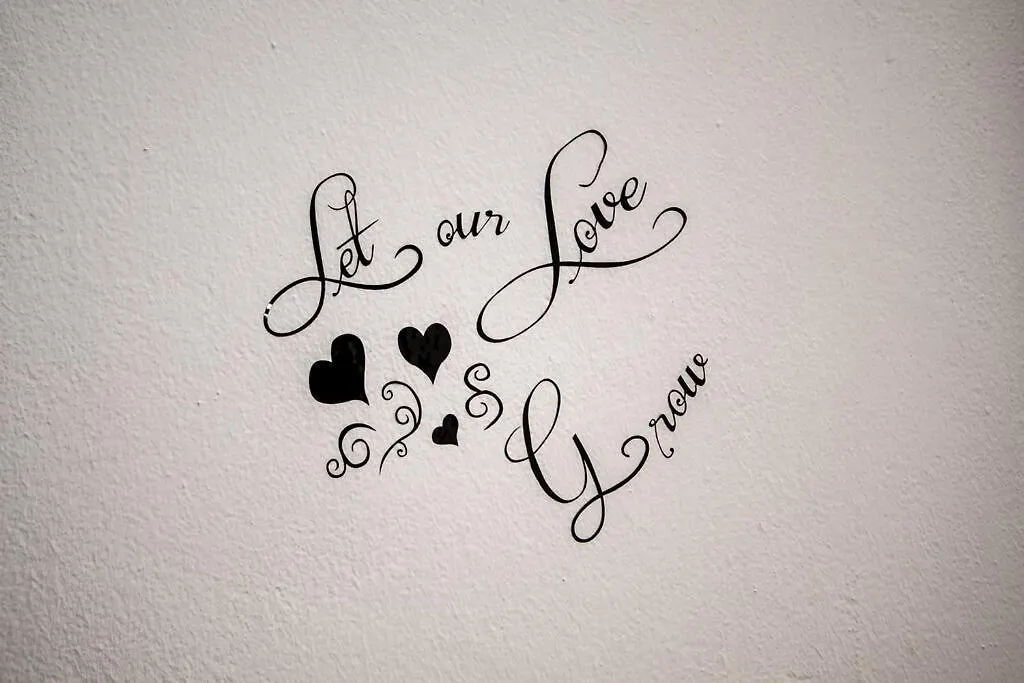 Let our Love
Grow